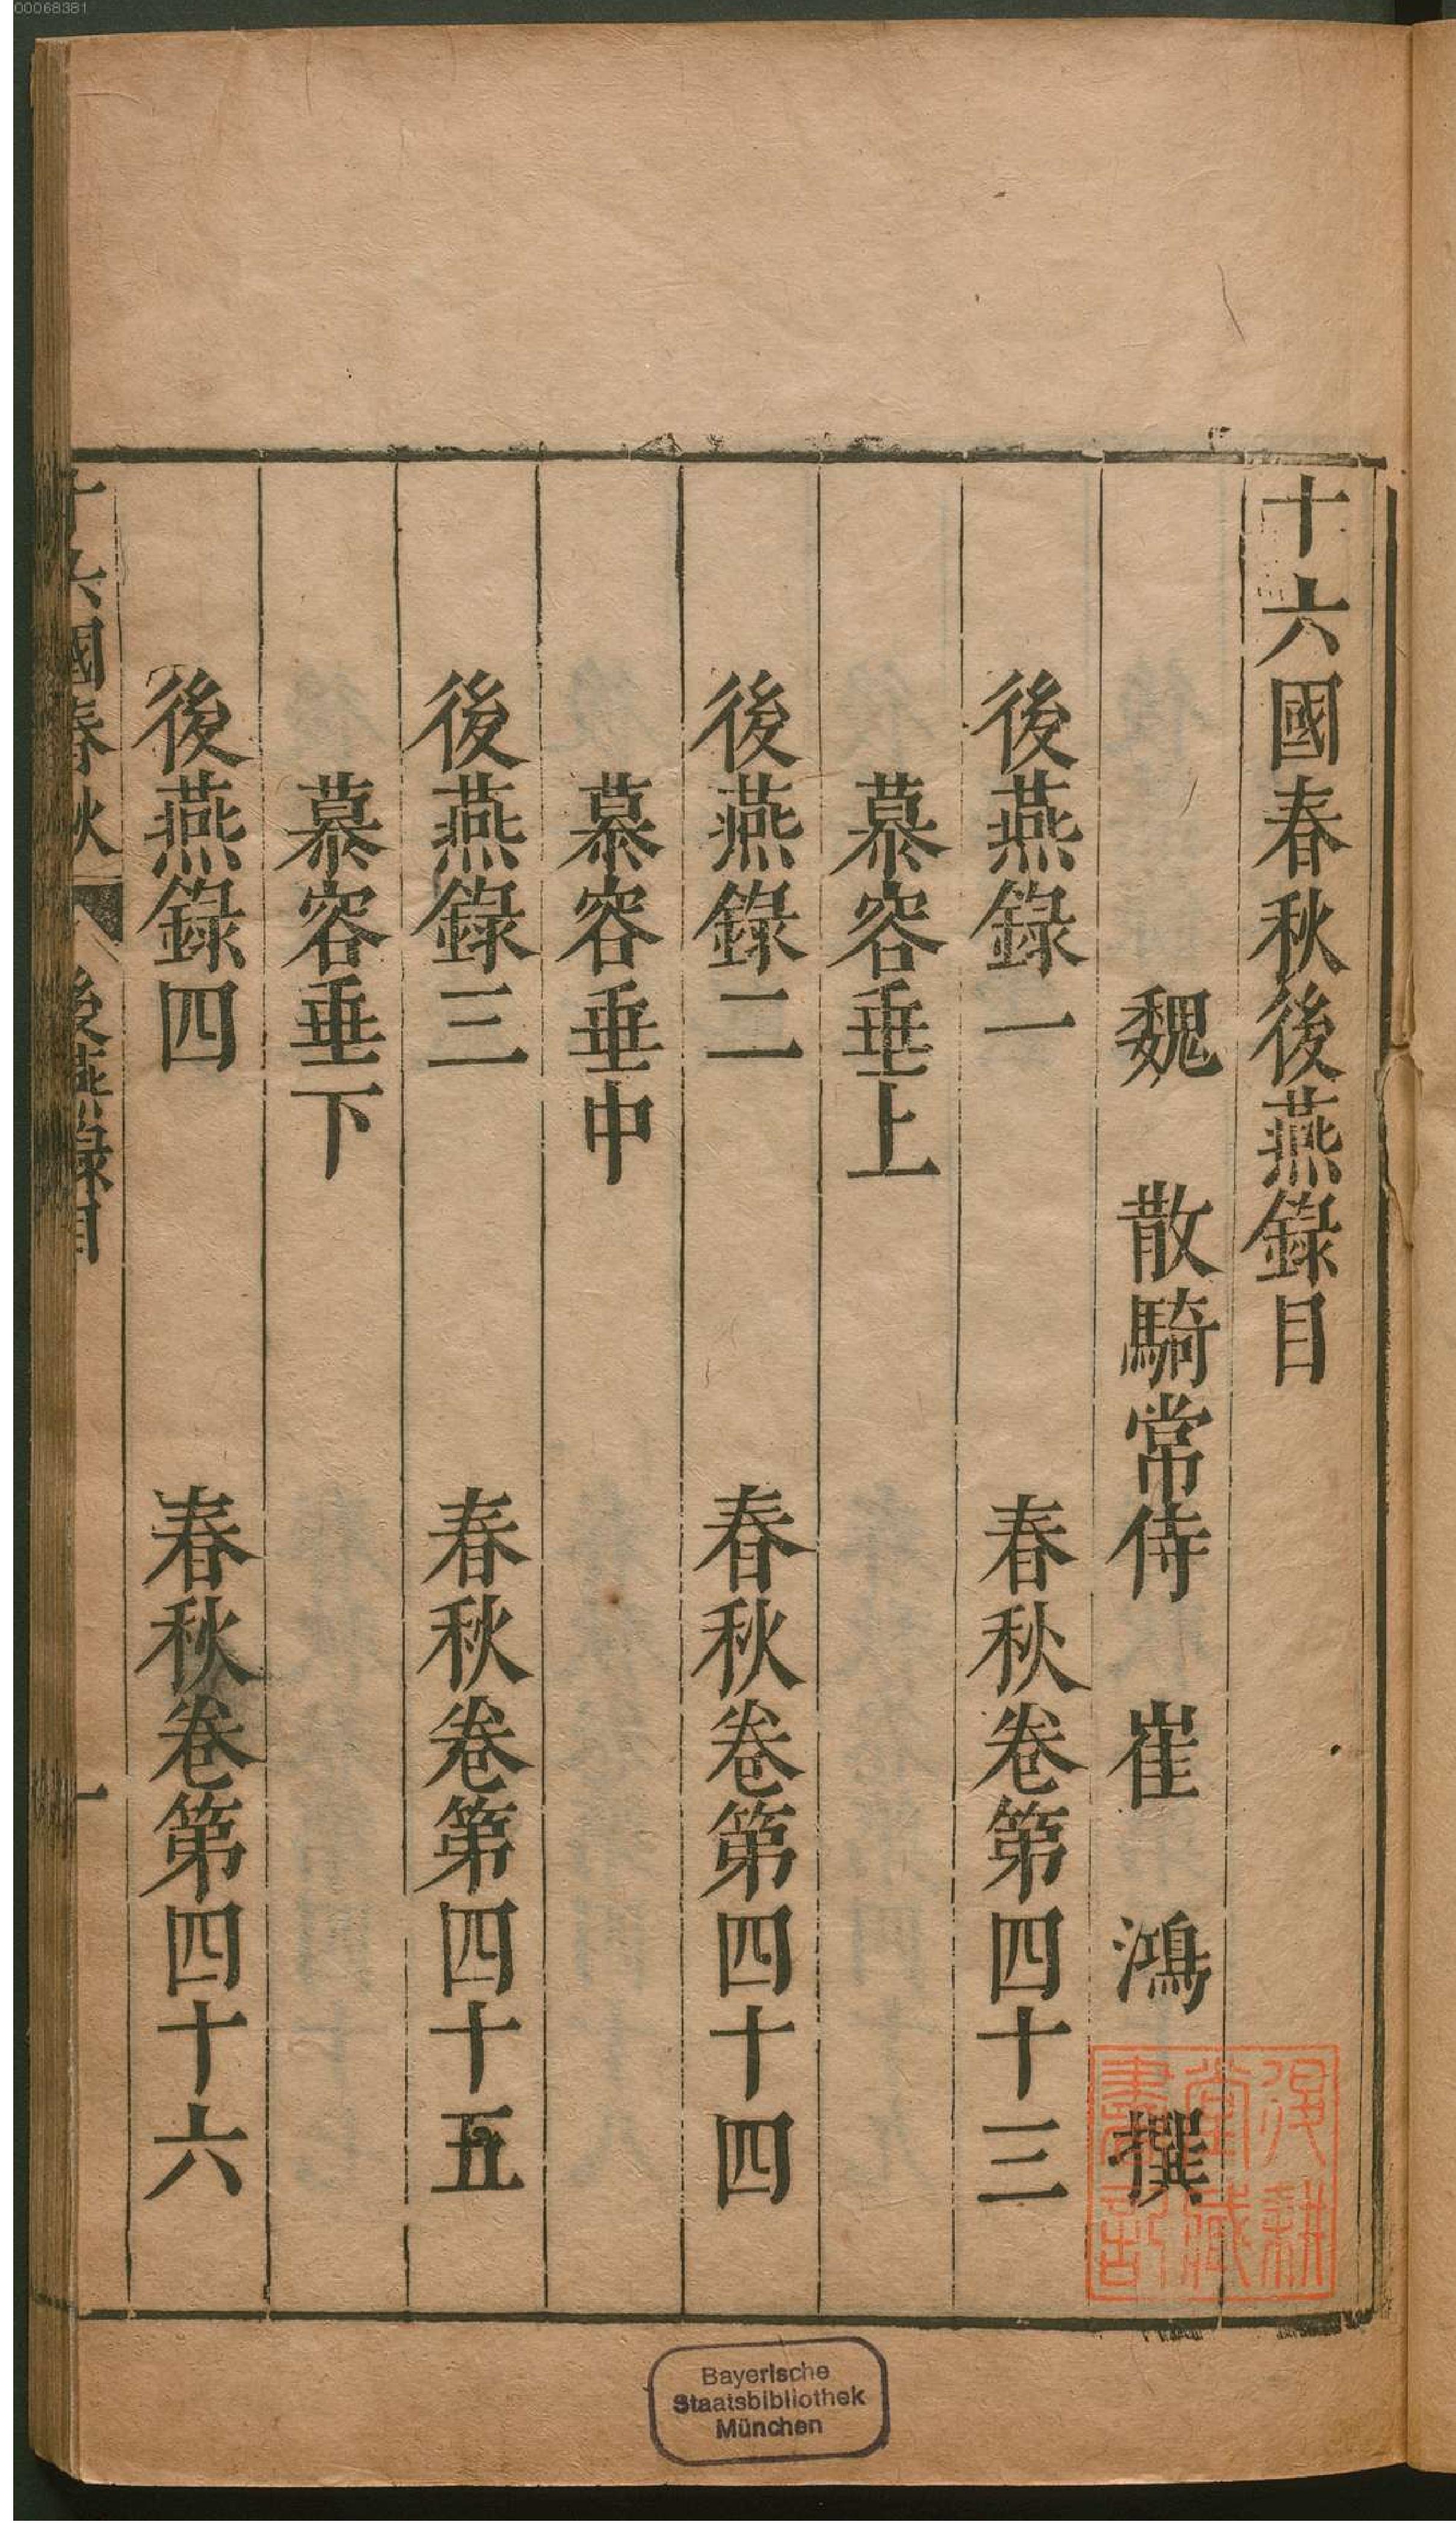 十六國春秋後燕錄目
魏　散騎常侍　崔　鴻　撰
後燕錄一　春秋卷第四十三
慕容垂上
後燕錄二　春秋卷第四十四
慕容垂中
後燕錄三　春秋卷第四十五
慕容垂下
後燕錄四　春秋卷第四十六
十六國春秋　後燕錄目　一
Bayerische
Staatsbibliothek
München
00068381